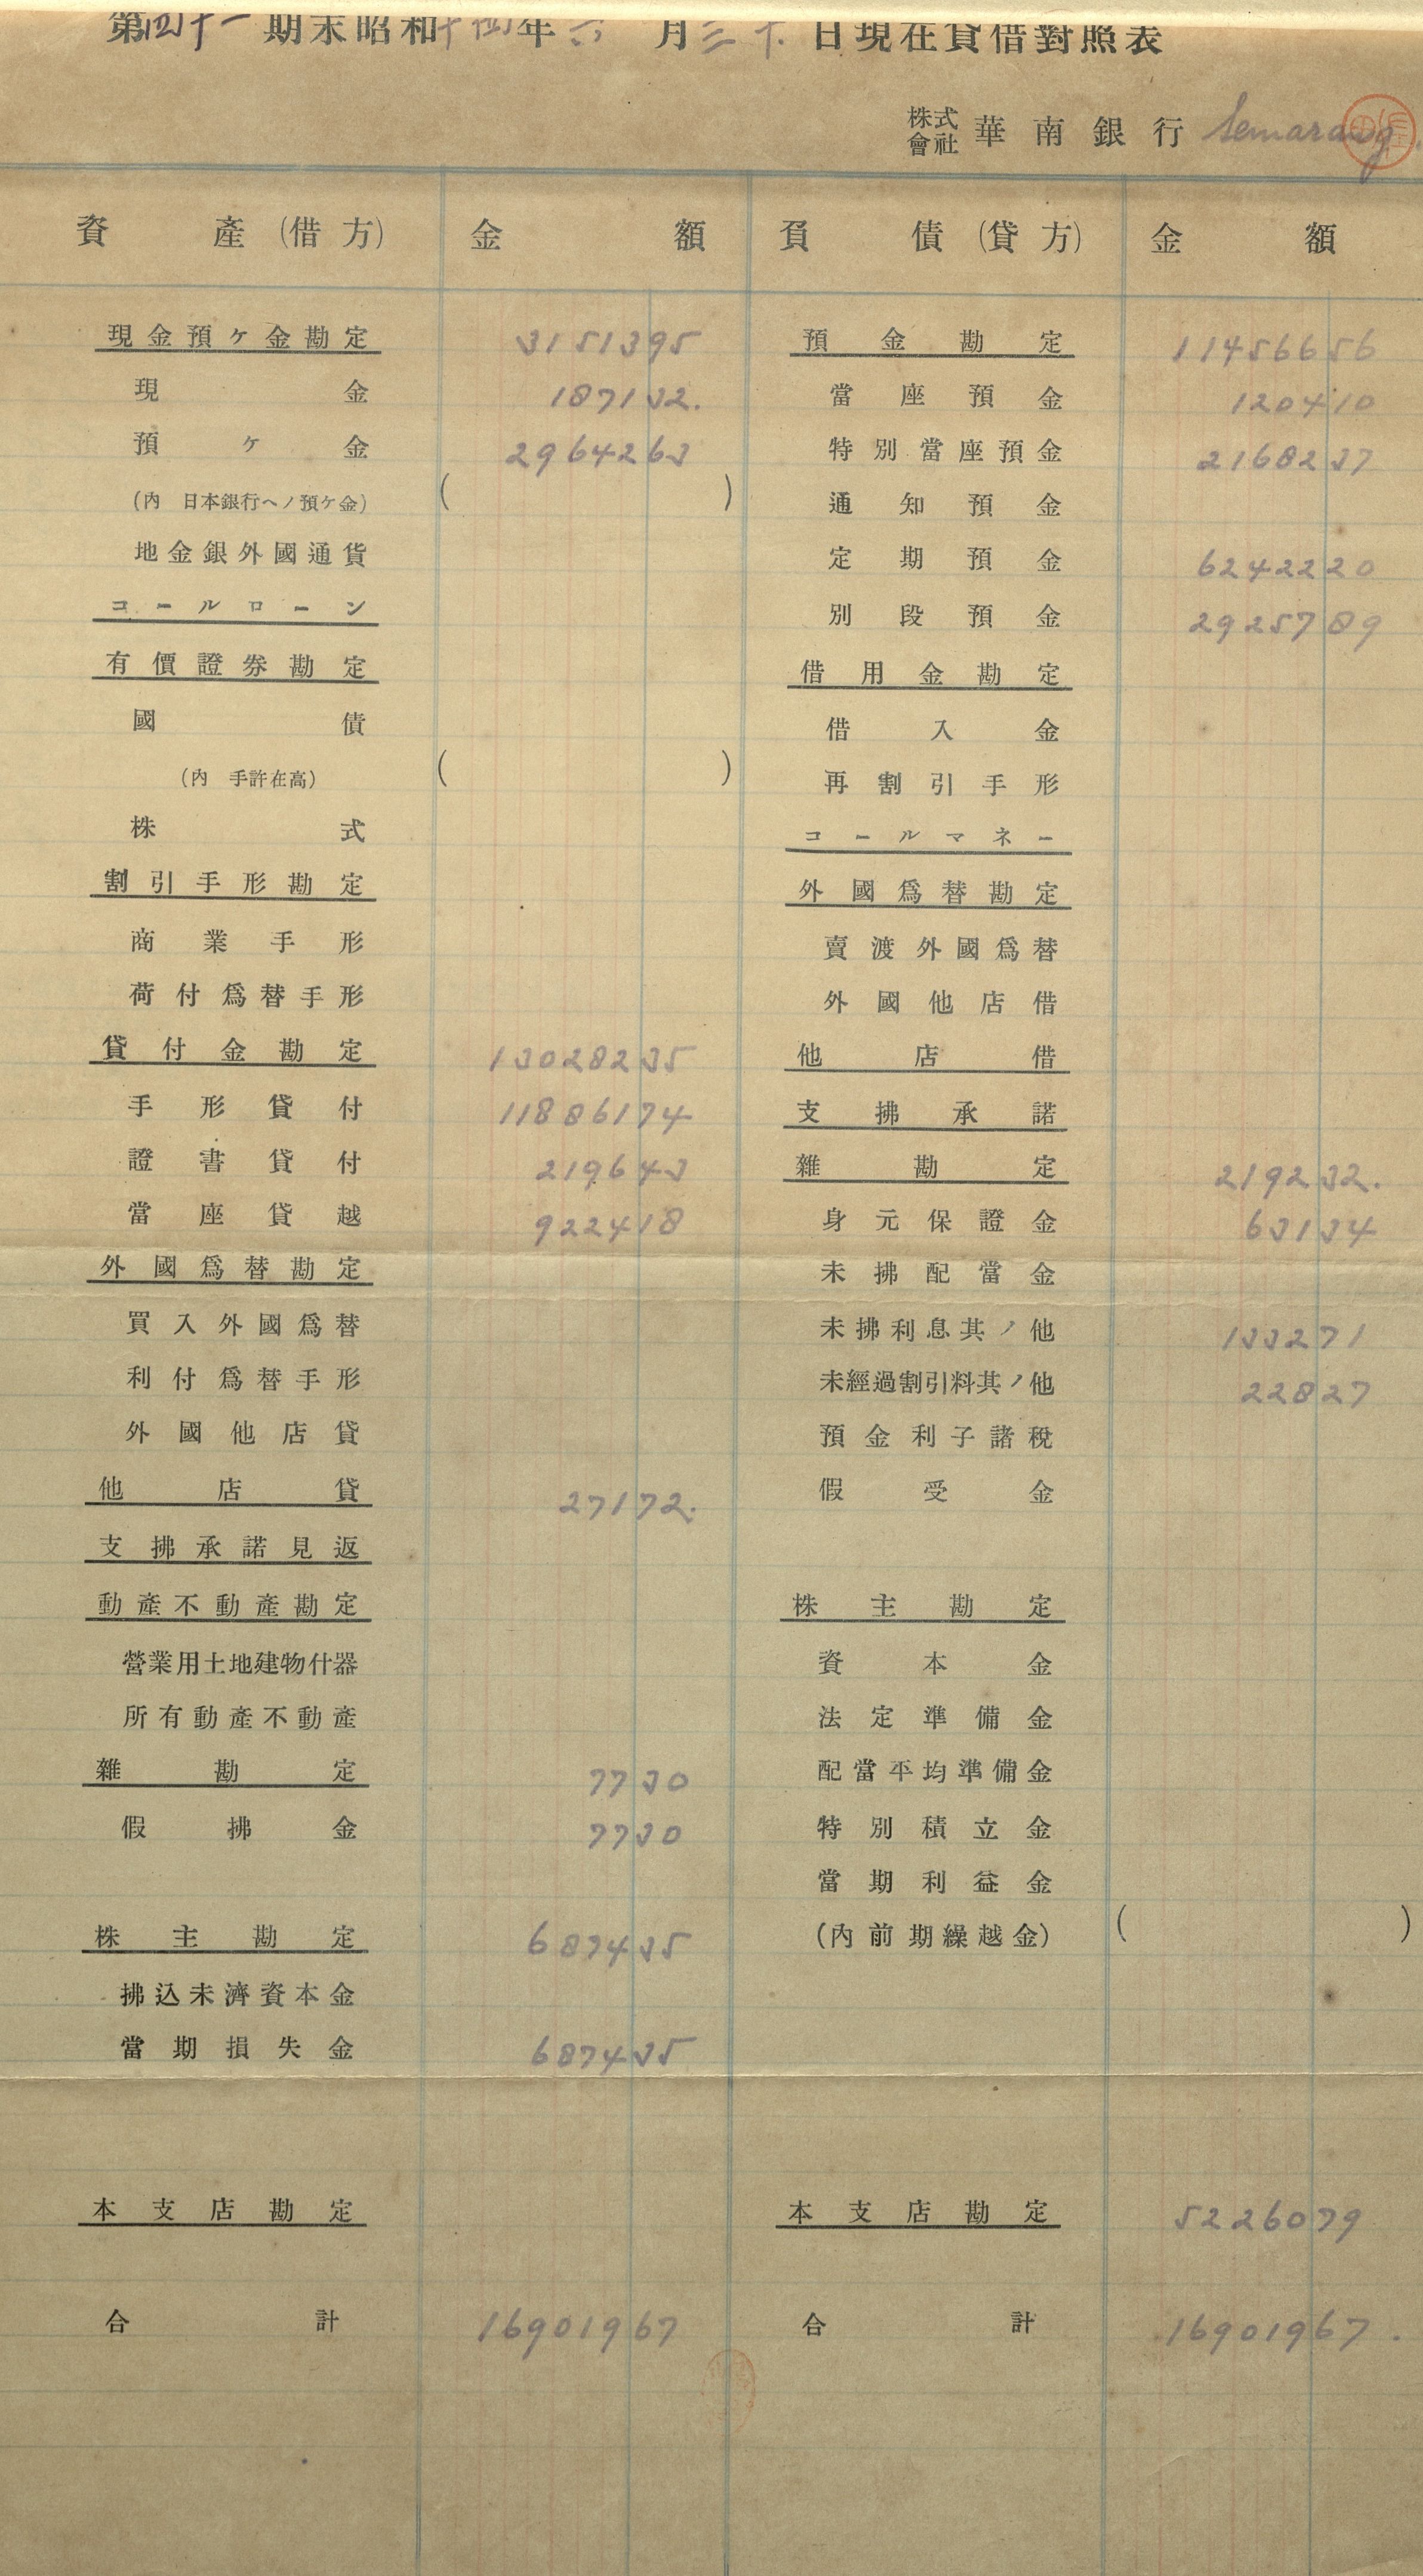 第四十一期末昭和十四年六月三十日現在貸借對照表
株式會社 華南銀行 Semarang
資產(借方) 金額 負債(貸方) 金額
現金預ヶ金勘定 3151395 預金勘定 11456656
現金 187132. 當座預金 120410
預ヶ金 2964263 特別當座預金 2168237
(內 日本銀行ヘノ預ケ金) ( ) 通知預金
地金銀外國通貨 定期預金 6242220
コールローン 別段預金 2925789
有價證券勘定 借用金勘定
國債 借入金
(內 手許在高) ( ) 再割引手形
株式 コールマネー
割引手形勘定 外國爲替勘定
商業手形 賣渡外國爲替
荷付爲替手形 外國他店借
貸付金勘定 13028235 他店借
手形貸付 11886174 支拂承諾
證書貸付 219643 雜勘定 219232.
當座貸越 922418 身元保證金 63134
外國爲替勘定 未拂配當金
買入外國爲替 未拂利息其ノ他 133271
利付爲替手形 未經過割引料其ノ他 22827
外國他店貸 預金利子諸稅
他店貸 27172. 假受金
支拂承諾見返
動產不動產勘定 株主勘定
營業用土地建物什器 資本金
所有動產不動產 法定準備金
雜勘定 7730 配當平均準備金
假拂金 7730 特別積立金
當期利益金
株主勘定 687435 (內前期繰越金) ( )
拂込未濟資本金
當期損失金 687435
本支店勘定 本支店勘定 5226079
合計 16901967 合計 16901967.